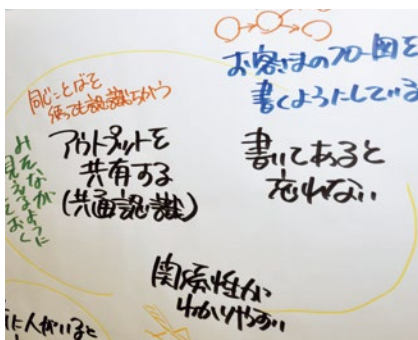 お客さまのフロー図を
書くようにしている
同じことばを
使っても認識ちがう
アウトプットを
共有する
(共通認識)
書いてあると
忘れない
みんなが
見えるように
しておく
関係性が
わかりやすい
に人がいると